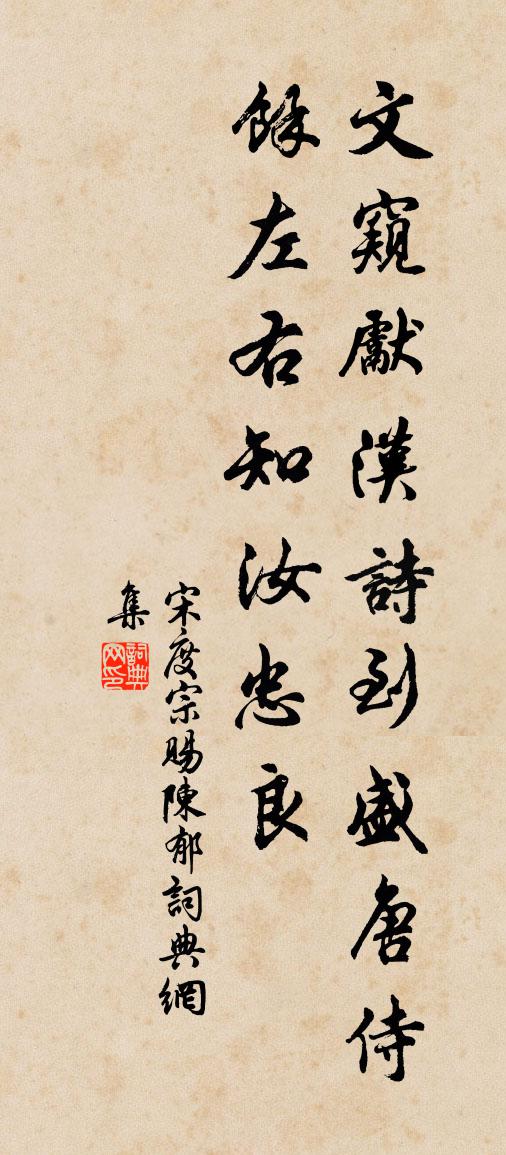 文窺獻漢詩到盛唐侍
餘左右知汝忠良
宋度宗賜陳郁詞典網
集
詞典
网印